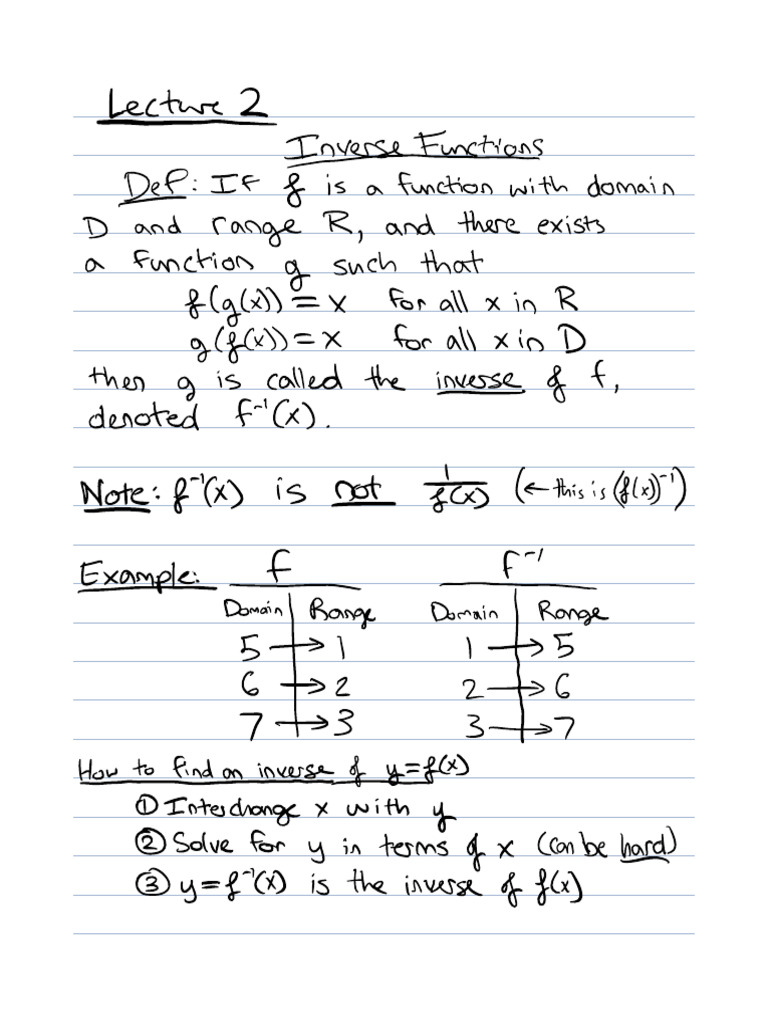 Lecture 2
Inverse Functions
Def: If f is a function with domain
D and range R, and there exists
a function g such that
f(g(x)) = x for all x in R
g(f(x)) = x for all x in D
then g is called the inverse of f,
denoted f⁻¹(x).
Note: f⁻¹(x) is not 1/f(x) (← this is (f(x))⁻¹)
Example: f f⁻¹
Domain | Range Domain | Range
5 → 1 1 → 5
6 → 2 2 → 6
7 → 3 3 → 7
How to find an inverse of y=f(x)
① Interchange x with y
② Solve for y in terms of x (can be hard)
③ y=f⁻¹(x) is the inverse of f(x)